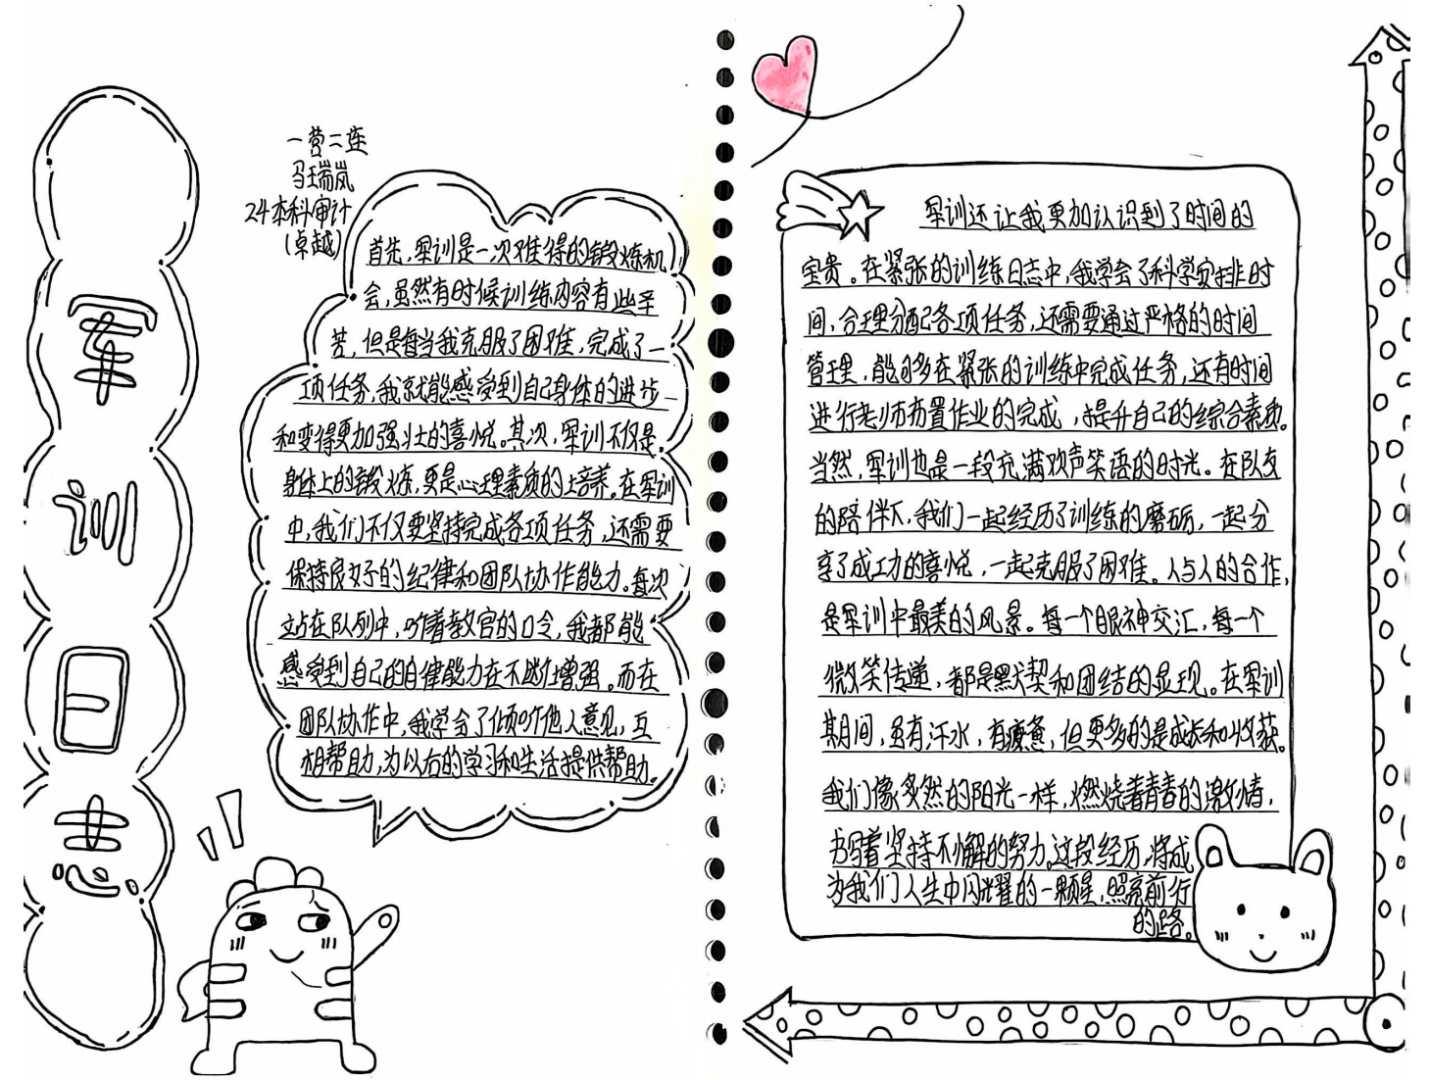 军训日志
一营二连
马瑞岚
24本科审计
(卓越)
首先,军训是一次难得的锻炼机
会,虽然有时候训练内容有些辛
苦,但是每当我克服了困难,完成了一
项任务,我就能感受到自己身体的进步
和变得更加强壮的喜悦。其次,军训不仅是
身体上的锻炼,更是心理素质的培养。在军训
中,我们不仅要坚持完成各项任务,还需要
保持良好的纪律和团队协作能力。每次
站在队列中,听着教官的口令,我都能
感受到自己的自律能力在不断增强。而在
团队协作中,我学会了倾听他人意见,互
相帮助,为以右的学习和生活提供帮助。
军训还让我更加认识到了时间的
宝贵。在紧张的训练日志中,我学会了科学安排时
间,合理分配各项任务,还需要通过严格的时间
管理,能够在紧张的训练中完成任务,还有时间
进行老师布置作业的完成,提升自己的综合素质。
当然,军训也是一段充满欢声笑语的时光。在队友
的陪伴下,我们一起经历了训练的磨砺,一起分
享了成功的喜悦,一起克服了困难。人与人的合作,
是军训中最美的风景。每一个眼神交汇,每一个
微笑传递,都是默契和团结的显现。在军训
期间,虽有汗水,有疲惫,但更多的是成长和收获。
我们像炙热的阳光一样,燃烧着青春的激情,
书写着坚持不懈的努力。这段经历,将成
为我们人生中闪耀的一颗星,照亮前行
的路。